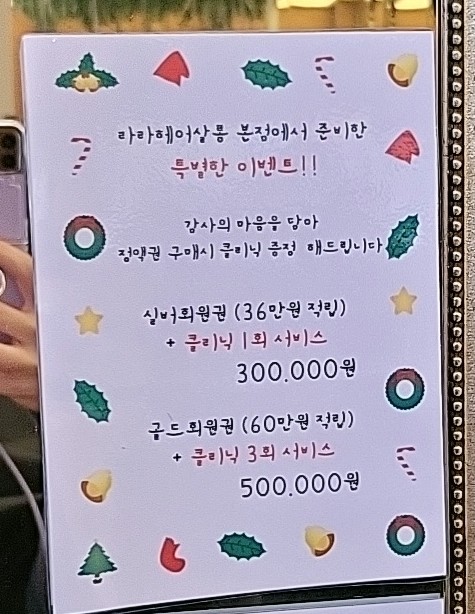 라라헤어살롱 본점에서 준비한
특별한 이벤트!!
감사의 마음을 담아
정액권 구매시 클리닉 증정 해드립니다
실버회원권 (36만원 적립)
+ 클리닉 1회 서비스
300.000원
골드회원권 (60만원 적립)
+ 클리닉 3회 서비스
500.000원